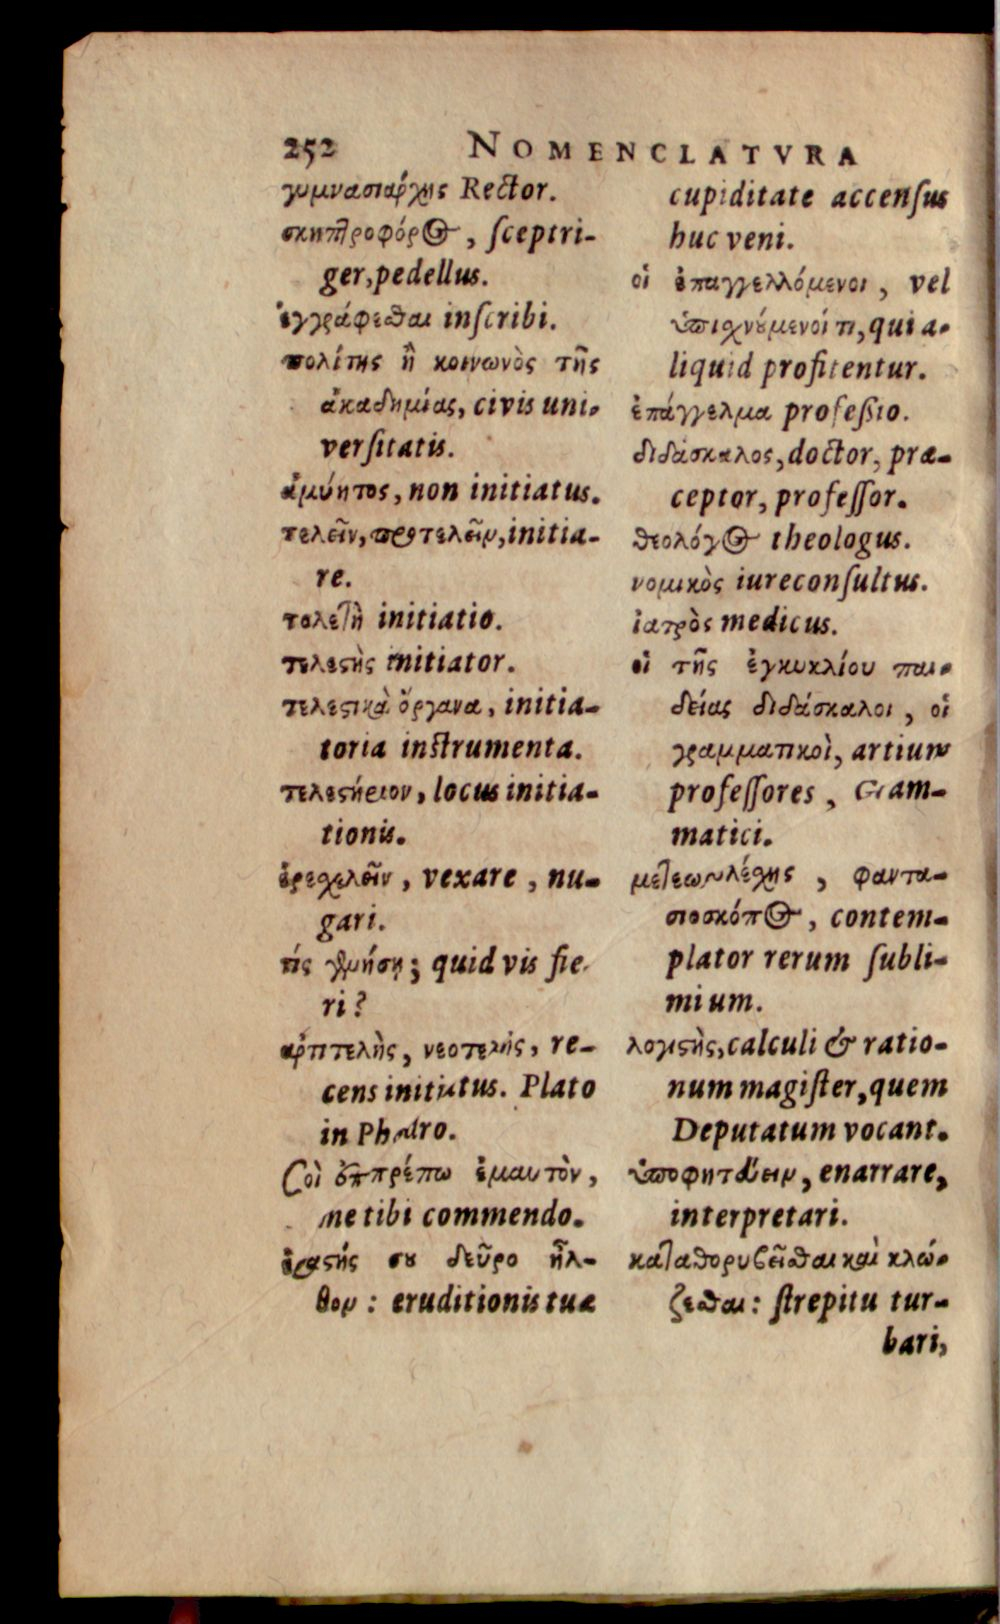 252 NOMENCLATVRA
γυμνασιάρχης Rector.
σκηπτροφόρος, ſceptri-
ger, pedellus.
ἐγγράφεσθαι inſcribi.
πολίτης ἢ κοινωνὸς τῆς
ἀκαδημίας, civis uni-
verſitatis.
ἀμύητος, non initiatus.
τελεῖν, προτελεῖν, initia-
re.
τελετὴ initiatio.
τελεστὴς initiator.
τελεστικὰ ὄργανα, initia-
toria inſtrumenta.
τελεστήριον, locus initia-
tionis.
ἐρεσχελεῖν, vexare, nu-
gari.
τίς γενήσῃ; quid vis fie-
ri?
ἀρτιτελὴς, νεοτελὴς, re-
cens initiatus. Plato
in Phædro.
Σοὶ ἐπιτρέπω ἐμαυτὸν,
me tibi commendo.
ἐραστής σου δεῦρο ἦλ-
θον: eruditionis tuæ
cupiditate accenſus
huc veni.
οἱ ἐπαγγελλόμενοι, vel
ὑπισχνούμενοί τι, qui a-
liquid profitentur.
ἐπάγγελμα profeſsio.
διδάσκαλος, doctor, præ-
ceptor, profeſſor.
θεολόγος theologus.
νομικὸς iureconſultus.
ἰατρὸς medicus.
οἱ τῆς ἐγκυκλίου παι-
δείας διδάσκαλοι, οἱ
γραμματικοὶ, artium
profeſſores, Gram-
matici.
μετεωρολέσχης, φαντα-
σιοσκόπος, contem-
plator rerum ſubli-
mium.
λογιστὴς, calculi & ratio-
num magiſter, quem
Deputatum vocant.
ὑποφητεύειν, enarrare,
interpretari.
καταθορυβεῖσθαι καὶ κλώ-
ζεσθαι: ſtrepitu tur-
bari,